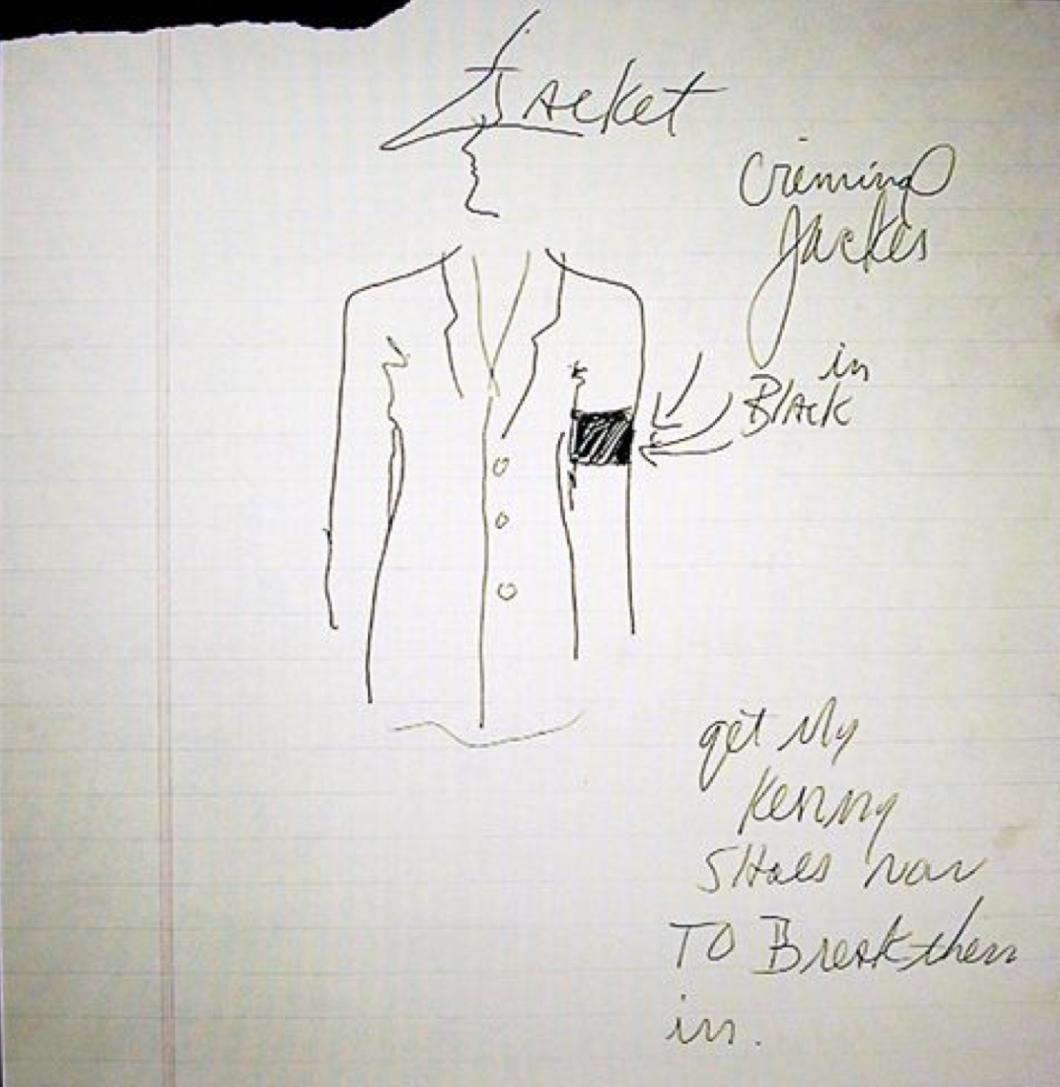 Jacket
Criminal
Jacket
in
Black
get My
Kenny
SHoes now
TO Break them
in.